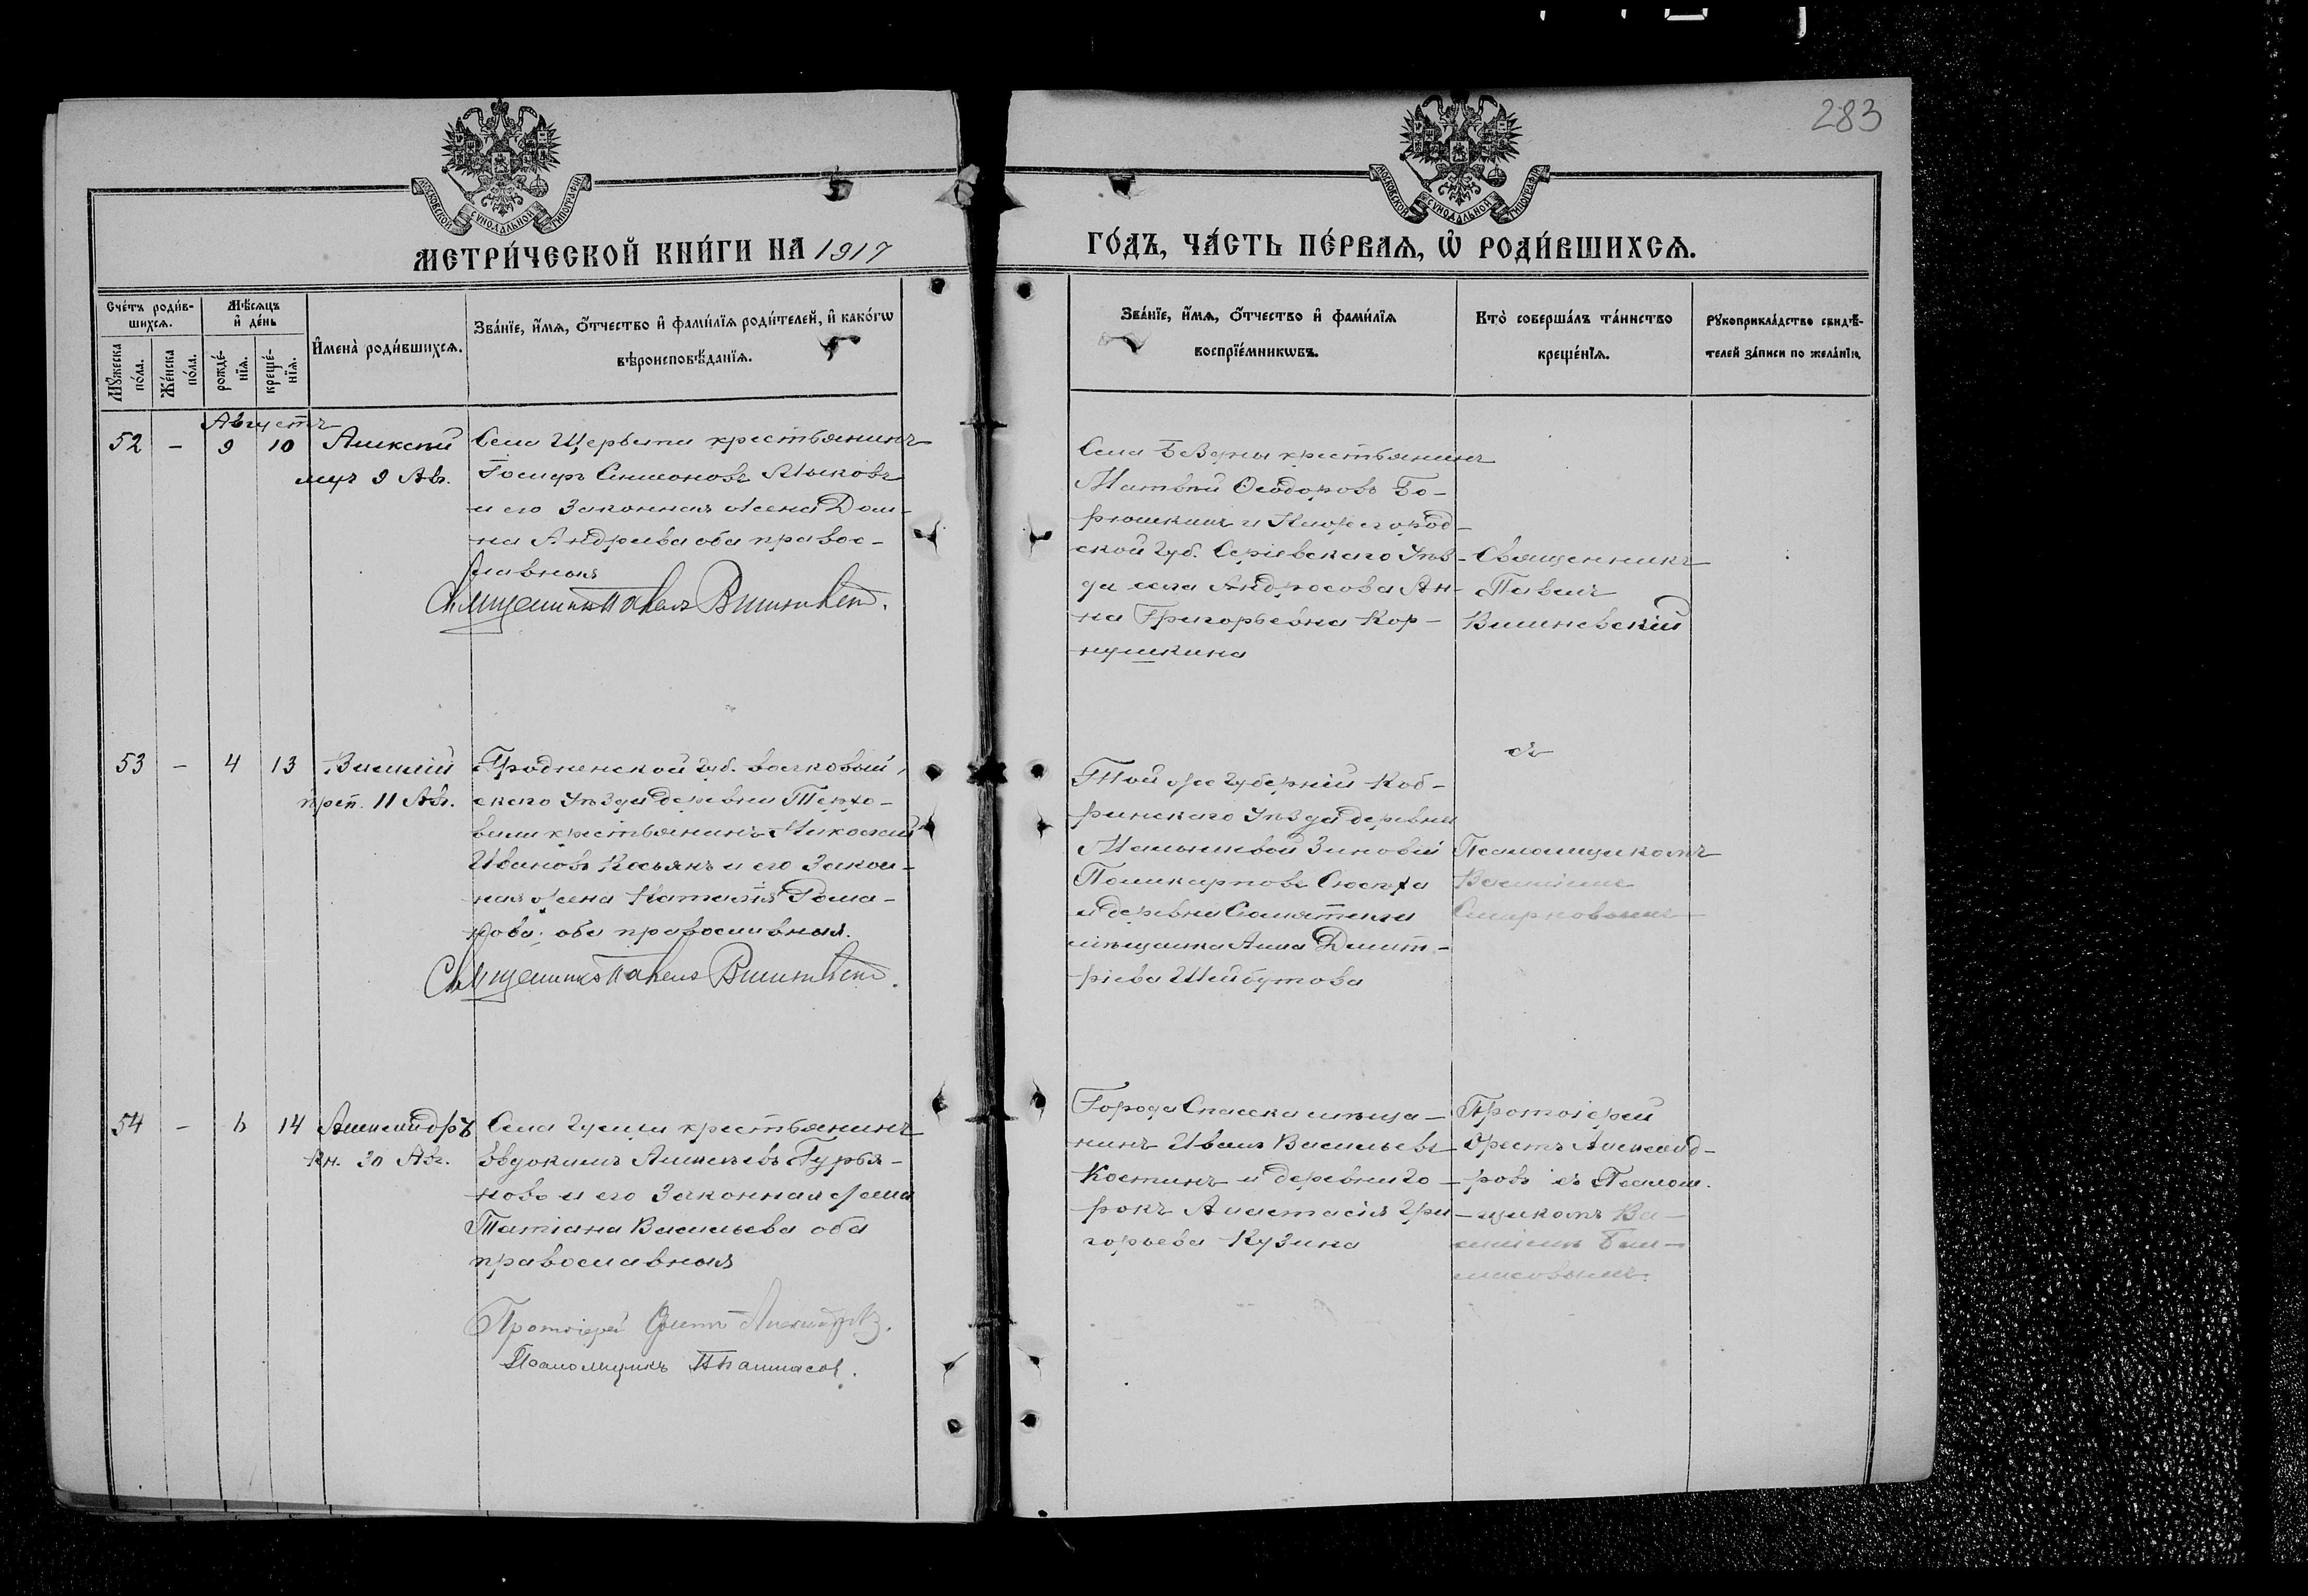 283
МОСКОВСКОЙ СѴНОДАЛЬНОЙ ТИПОГРАФІИ
МОСКОВСКОЙ СѴНОДАЛЬНОЙ ТИПОГРАФІИ
МЕТРИ́ЧЕСКОЙ КНИ́ГИ НА 1917
ГО́ДЪ, ЧА́СТЬ ПЕ́РВАѦ, Ѡ҆ РОДИ́ВШИХСѦ.
Сче́тъ роди́в-
шихсѧ.
Мꙋ́жеска
по́ла.
Же́нска
по́ла.
Мѣ́сѧцъ
и҆ де́нь
рожде́-
нїѧ.
креще́-
нїѧ.
И҆мена̀ роди́вшихсѧ.
Зва́нїе, и҆́мѧ, ѻ҆́тчество и҆ фами́лїѧ роди́телей, и҆ како́гѡ
вѣроисповѣ́данїѧ.
Зва́нїе, и҆́мѧ, ѻ҆́тчество и҆ фами́лїѧ
воспрїе́мникѡвъ.
Кто̀ соверша́лъ та́инство
креще́нїѧ.
Рꙋкоприкла́дство свидѣ́-
телей за́писи по жела́нїю.
Августъ
52 - 9 10 Алексѣй
муч 9 Авг.
Села Щербети крестьянинъ
Симоновъ Лыковъ
и его законная жена Дом-
на Андреева оба правос-
лавныя
Священникъ Павелъ Вишневскій.
Села Бездны крестьянинъ
Матвѣй Ѳеодоровъ Бо-
рюшкинъ и Нижегород-
ской губ. Сергіевскаго Уѣз-
да села Андросова Ан-
на Григорьевна Кор-
нушкина
Священникъ
Павелъ
Вишневскій
съ
Псаломщикомъ
Василіемъ
Смирновымъ
53 - 4 13 Василій
преп. 11 Авг.
Гродненской губ. волковый-
скаго Уѣзда деревни
крестьянинъ Николай
Ивановъ Касьянъ и его закон-
ная жена Наталія Рома-
нова, оба православныя.
Священникъ Павелъ Вишневскій.
Той же губерніи Коб-
ринскаго Уѣзда деревни
Зиновій
Поликарповъ
и деревни
мѣщанка Анна Димит-
ріева Шейбутова
54 - 6 14 Александръ
Кн. 30 Авг.
Села крестьянинъ
Евдокимъ Алексѣевъ Гурья-
новъ и его законная жена
Татіана Васильева оба
православныя
Протоіерей Орестъ Александровъ.
Псаломщикъ
Города Спасска мѣща-
нинъ Иванъ Васильевъ
Костинъ и деревни Го-
рокъ Анастасія Гри-
горьева Кузина
Протоіерей
Орестъ Александ-
ровъ съ Псалом-
щикомъ Ва-
силіемъ